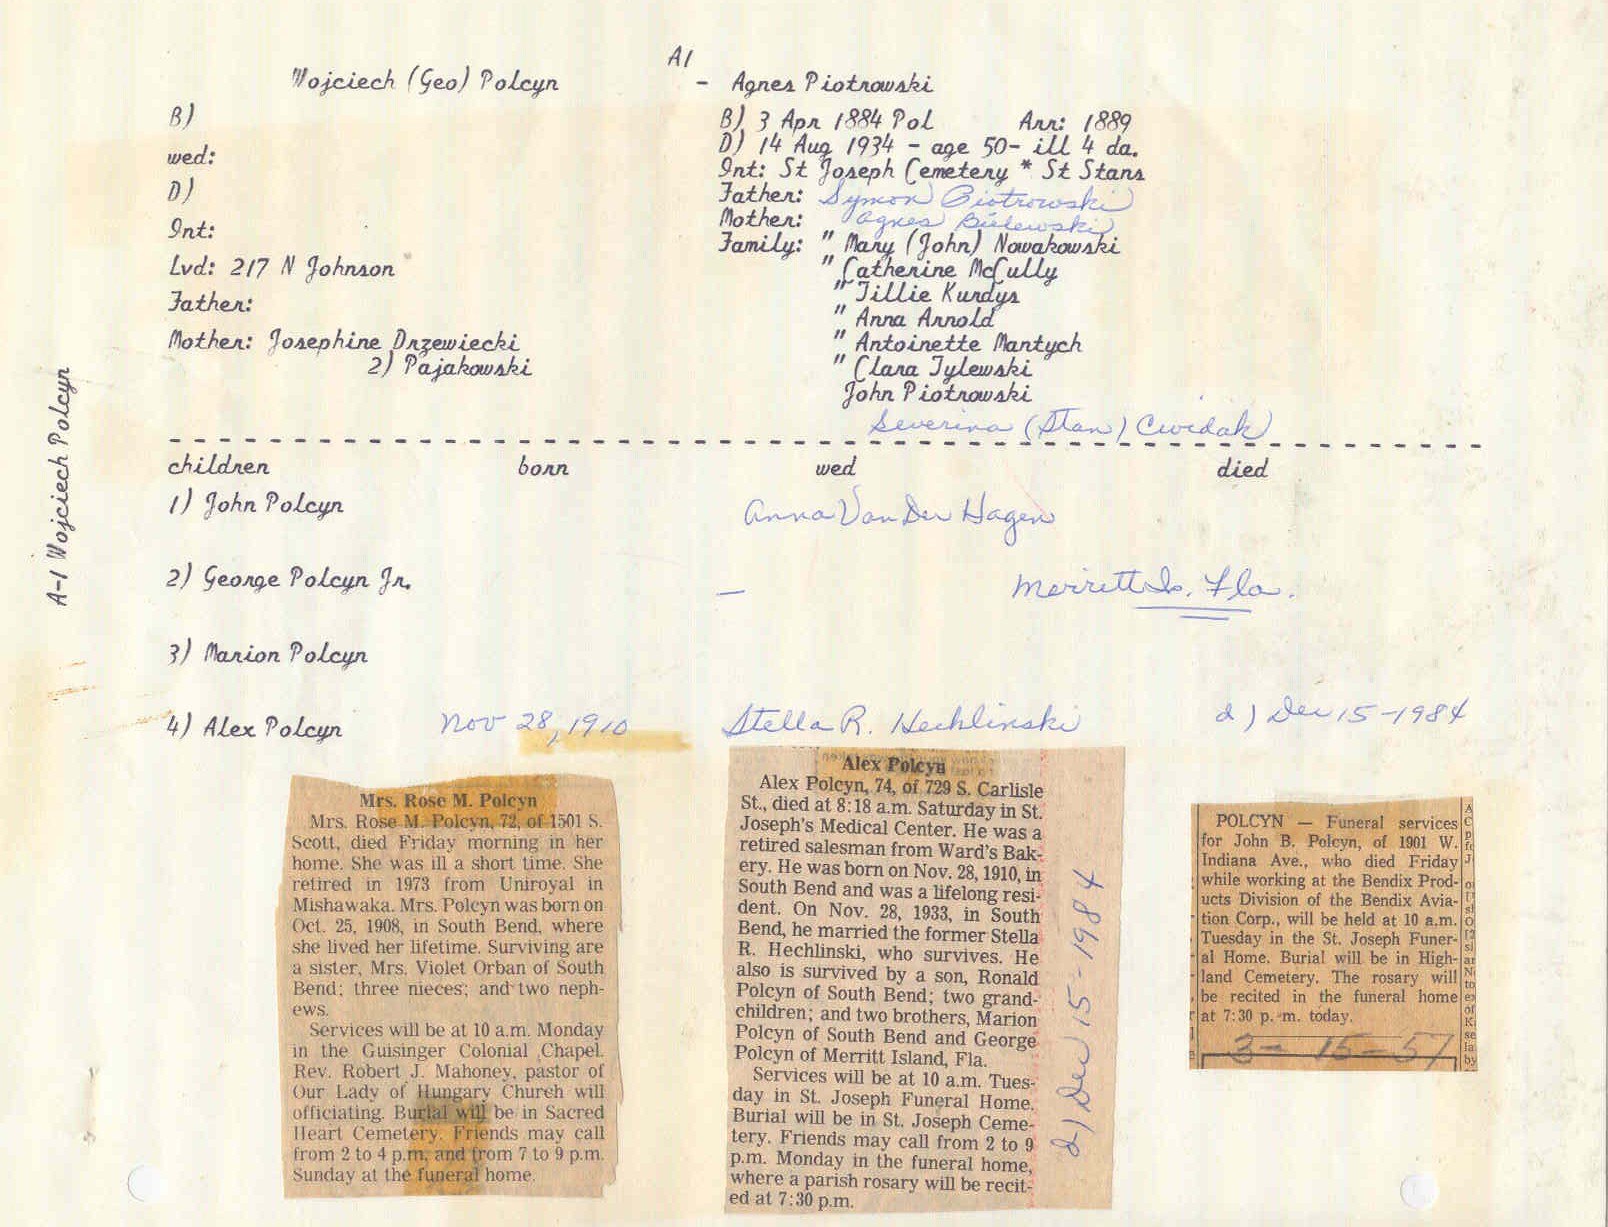 A1
Wojciech (Geo) Polcyn - Agnes Piotrowski
B)
wed:
D)
Int:
Lvd: 217 N Johnson
Father:
Mother: Josephine Drzewiecki
2) Pajakowski
B) 3 Apr 1884 Pol Arr: 1889
D) 14 Aug 1934 - age 50- ill 4 da.
Int: St Joseph Cemetery * St Stans
Father: Symon Piotrowski
Mother: Agnes Bielewski
Family: " Mary (John) Nowakowski
" Catherine McCully
" Tillie Kurdys
" Anna Arnold
" Antoinette Mantych
" Clara Tylewski
John Piotrowski
Severina (Stan) Cwidak
A-1 Wojciech Polcyn
children born wed died
1) John Polcyn Anna Van Der Hagen
2) George Polcyn Jr. — Merrett Is. Fla.
3) Marion Polcyn
4) Alex Polcyn Nov 28, 1910 Stella R. Hechlinski d) Dec 15-1984
Mrs. Rose M. Polcyn
Mrs. Rose M. Polcyn, 72, of 1501 S.
Scott, died Friday morning in her
home. She was ill a short time. She
retired in 1973 from Uniroyal in
Mishawaka. Mrs. Polcyn was born on
Oct. 25, 1908, in South Bend, where
she lived her lifetime. Surviving are
a sister, Mrs. Violet Orban of South
Bend; three nieces; and two neph-
ews.
Services will be at 10 a.m. Monday
in the Guisinger Colonial Chapel.
Rev. Robert J. Mahoney, pastor of
Our Lady of Hungary Church will
officiating. Burial will be in Sacred
Heart Cemetery. Friends may call
from 2 to 4 p.m. and from 7 to 9 p.m.
Sunday at the funeral home.
Alex Polcyn
Alex Polcyn, 74, of 729 S. Carlisle
St., died at 8:18 a.m. Saturday in St.
Joseph's Medical Center. He was a
retired salesman from Ward's Bak-
ery. He was born on Nov. 28, 1910, in
South Bend and was a lifelong resi-
dent. On Nov. 28, 1933, in South
Bend, he married the former Stella
R. Hechlinski, who survives. He
also is survived by a son, Ronald
Polcyn of South Bend; two grand-
children; and two brothers, Marion
Polcyn of South Bend and George
Polcyn of Merritt Island, Fla.
Services will be at 10 a.m. Tues-
day in St. Joseph Funeral Home.
Burial will be in St. Joseph Ceme-
tery. Friends may call from 2 to 9
p.m. Monday in the funeral home,
where a parish rosary will be recit-
ed at 7:30 p.m.
d) Dec 15-1984
POLCYN — Funeral services
for John B. Polcyn, of 1901 W.
Indiana Ave., who died Friday
while working at the Bendix Prod-
ucts Division of the Bendix Avia-
tion Corp., will be held at 10 a.m.
Tuesday in the St. Joseph Funer-
al Home. Burial will be in High-
land Cemetery. The rosary will
be recited in the funeral home
at 7:30 p. m. today.
3-15-57